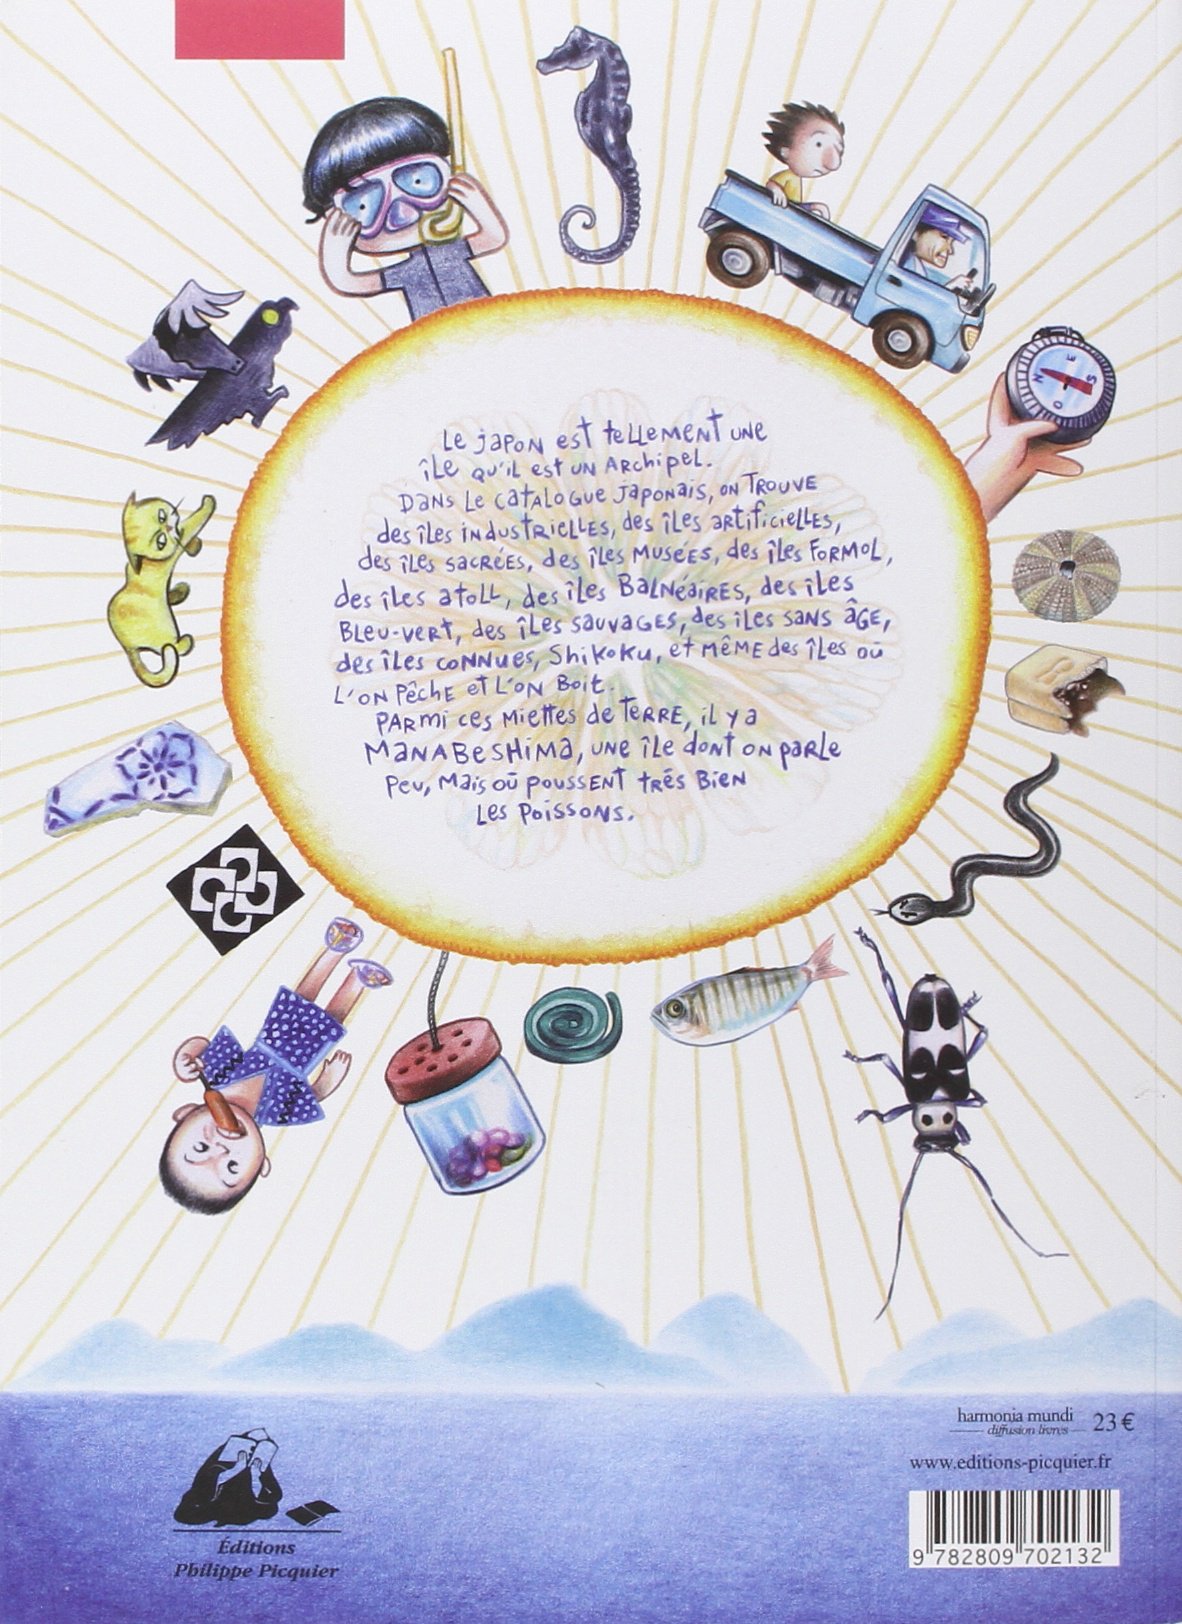 Le Japon est tellement une
île qu'il est un archipel.
Dans le catalogue japonais, on trouve
des îles industrielles, des îles artificielles,
des îles sacrées, des îles musées, des îles formol,
des îles atoll, des îles balnéaires, des îles
bleu-vert, des îles sauvages, des îles sans âge,
des îles connues, Shikoku, et même des îles où
l'on pêche et l'on boit.
Parmi ces miettes de terre, il y a
Manabeshima, une île dont on parle
peu, mais où poussent très bien
les poissons.
N
E
O
S
harmonia mundi
diffusion livres
23 €
www.editions-picquier.fr
9 782809 702132
Éditions
Philippe Picquier